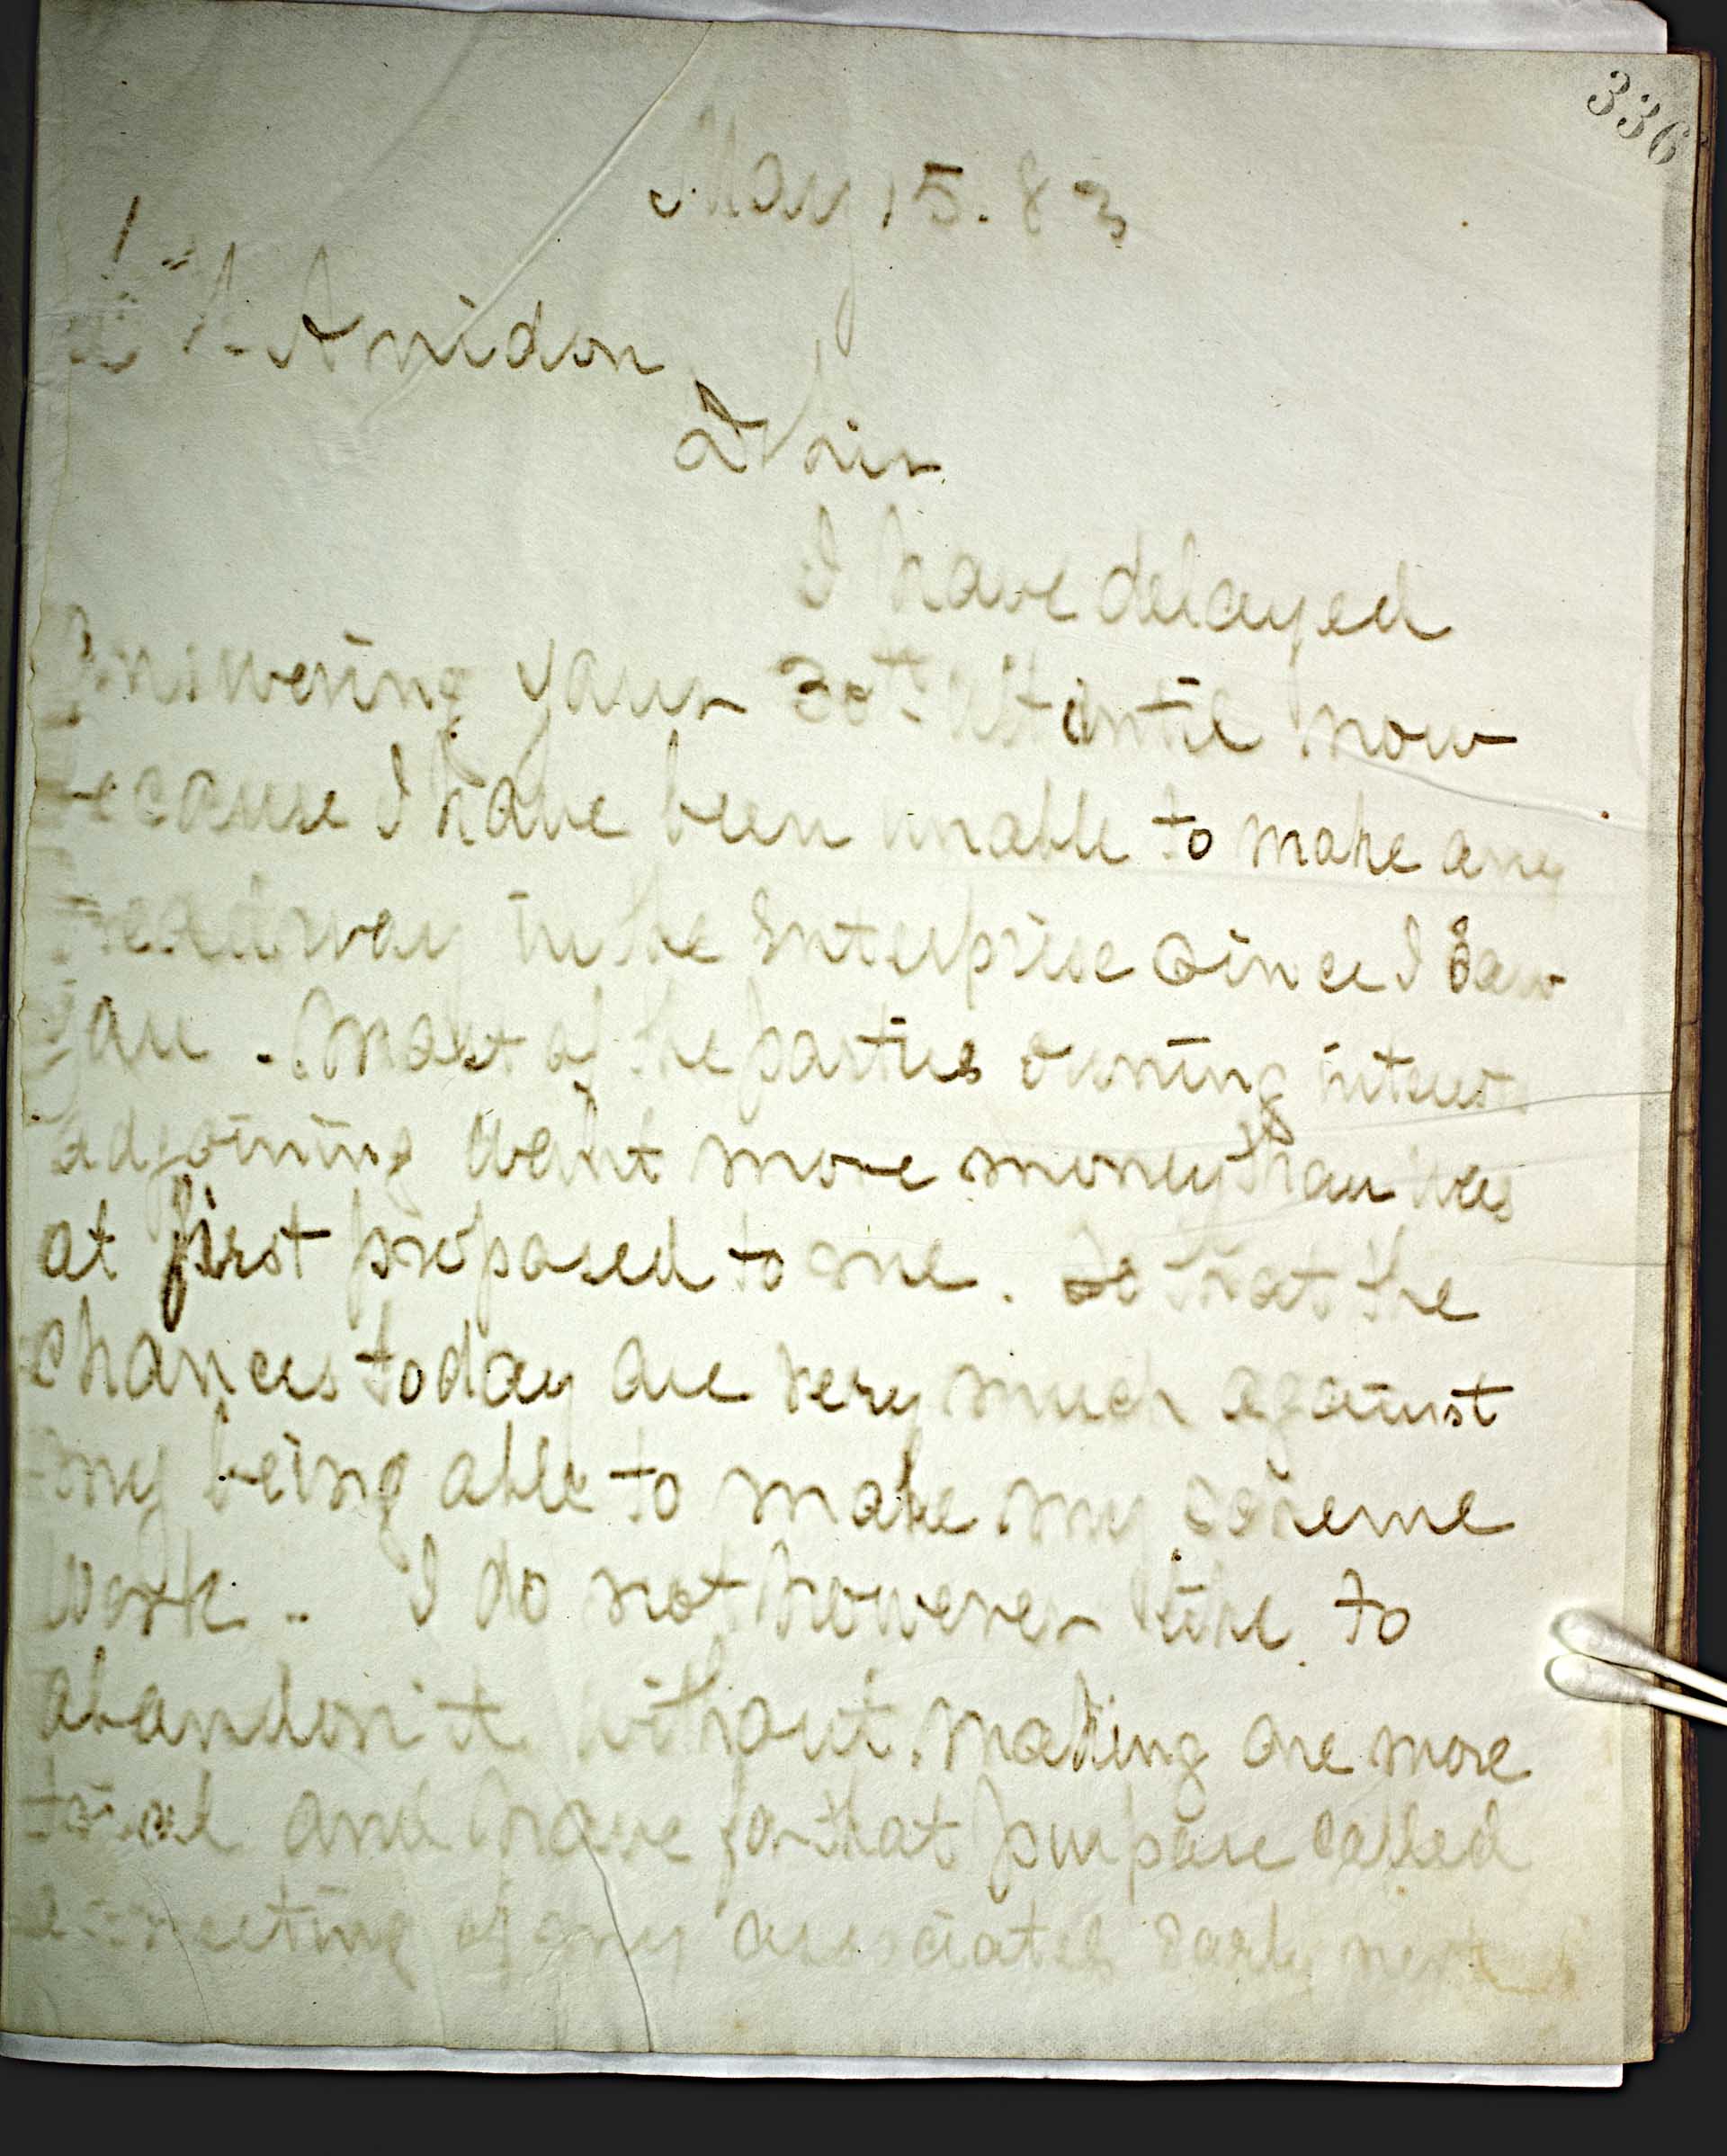 336
May 15. 83
Amidon
D Sir
I have delayed
Answering your 30th ult until now
because I have been unable to make any
headway in the Enterprise Since I Saw
you. Most of the parties owning interests
adjoining want more money than was
at first proposed to me. So that the
chances today are very much against
my being able to make my scheme
work. I do not however like to
abandon it without making one more
trial and have for that purpose called
a meeting of my associates Early next